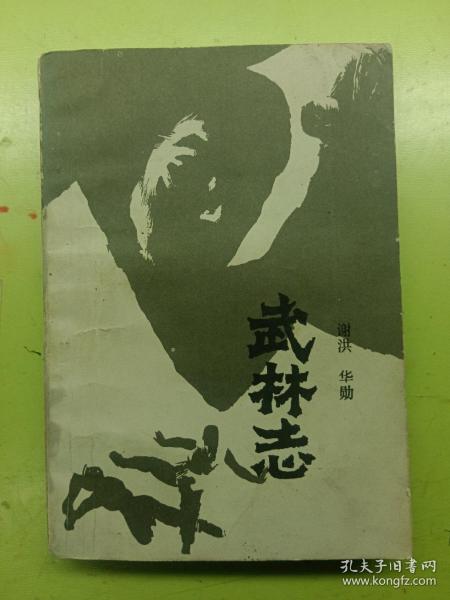 武林志
谢洪 华勋
孔夫子旧书网
www.kongfz.com